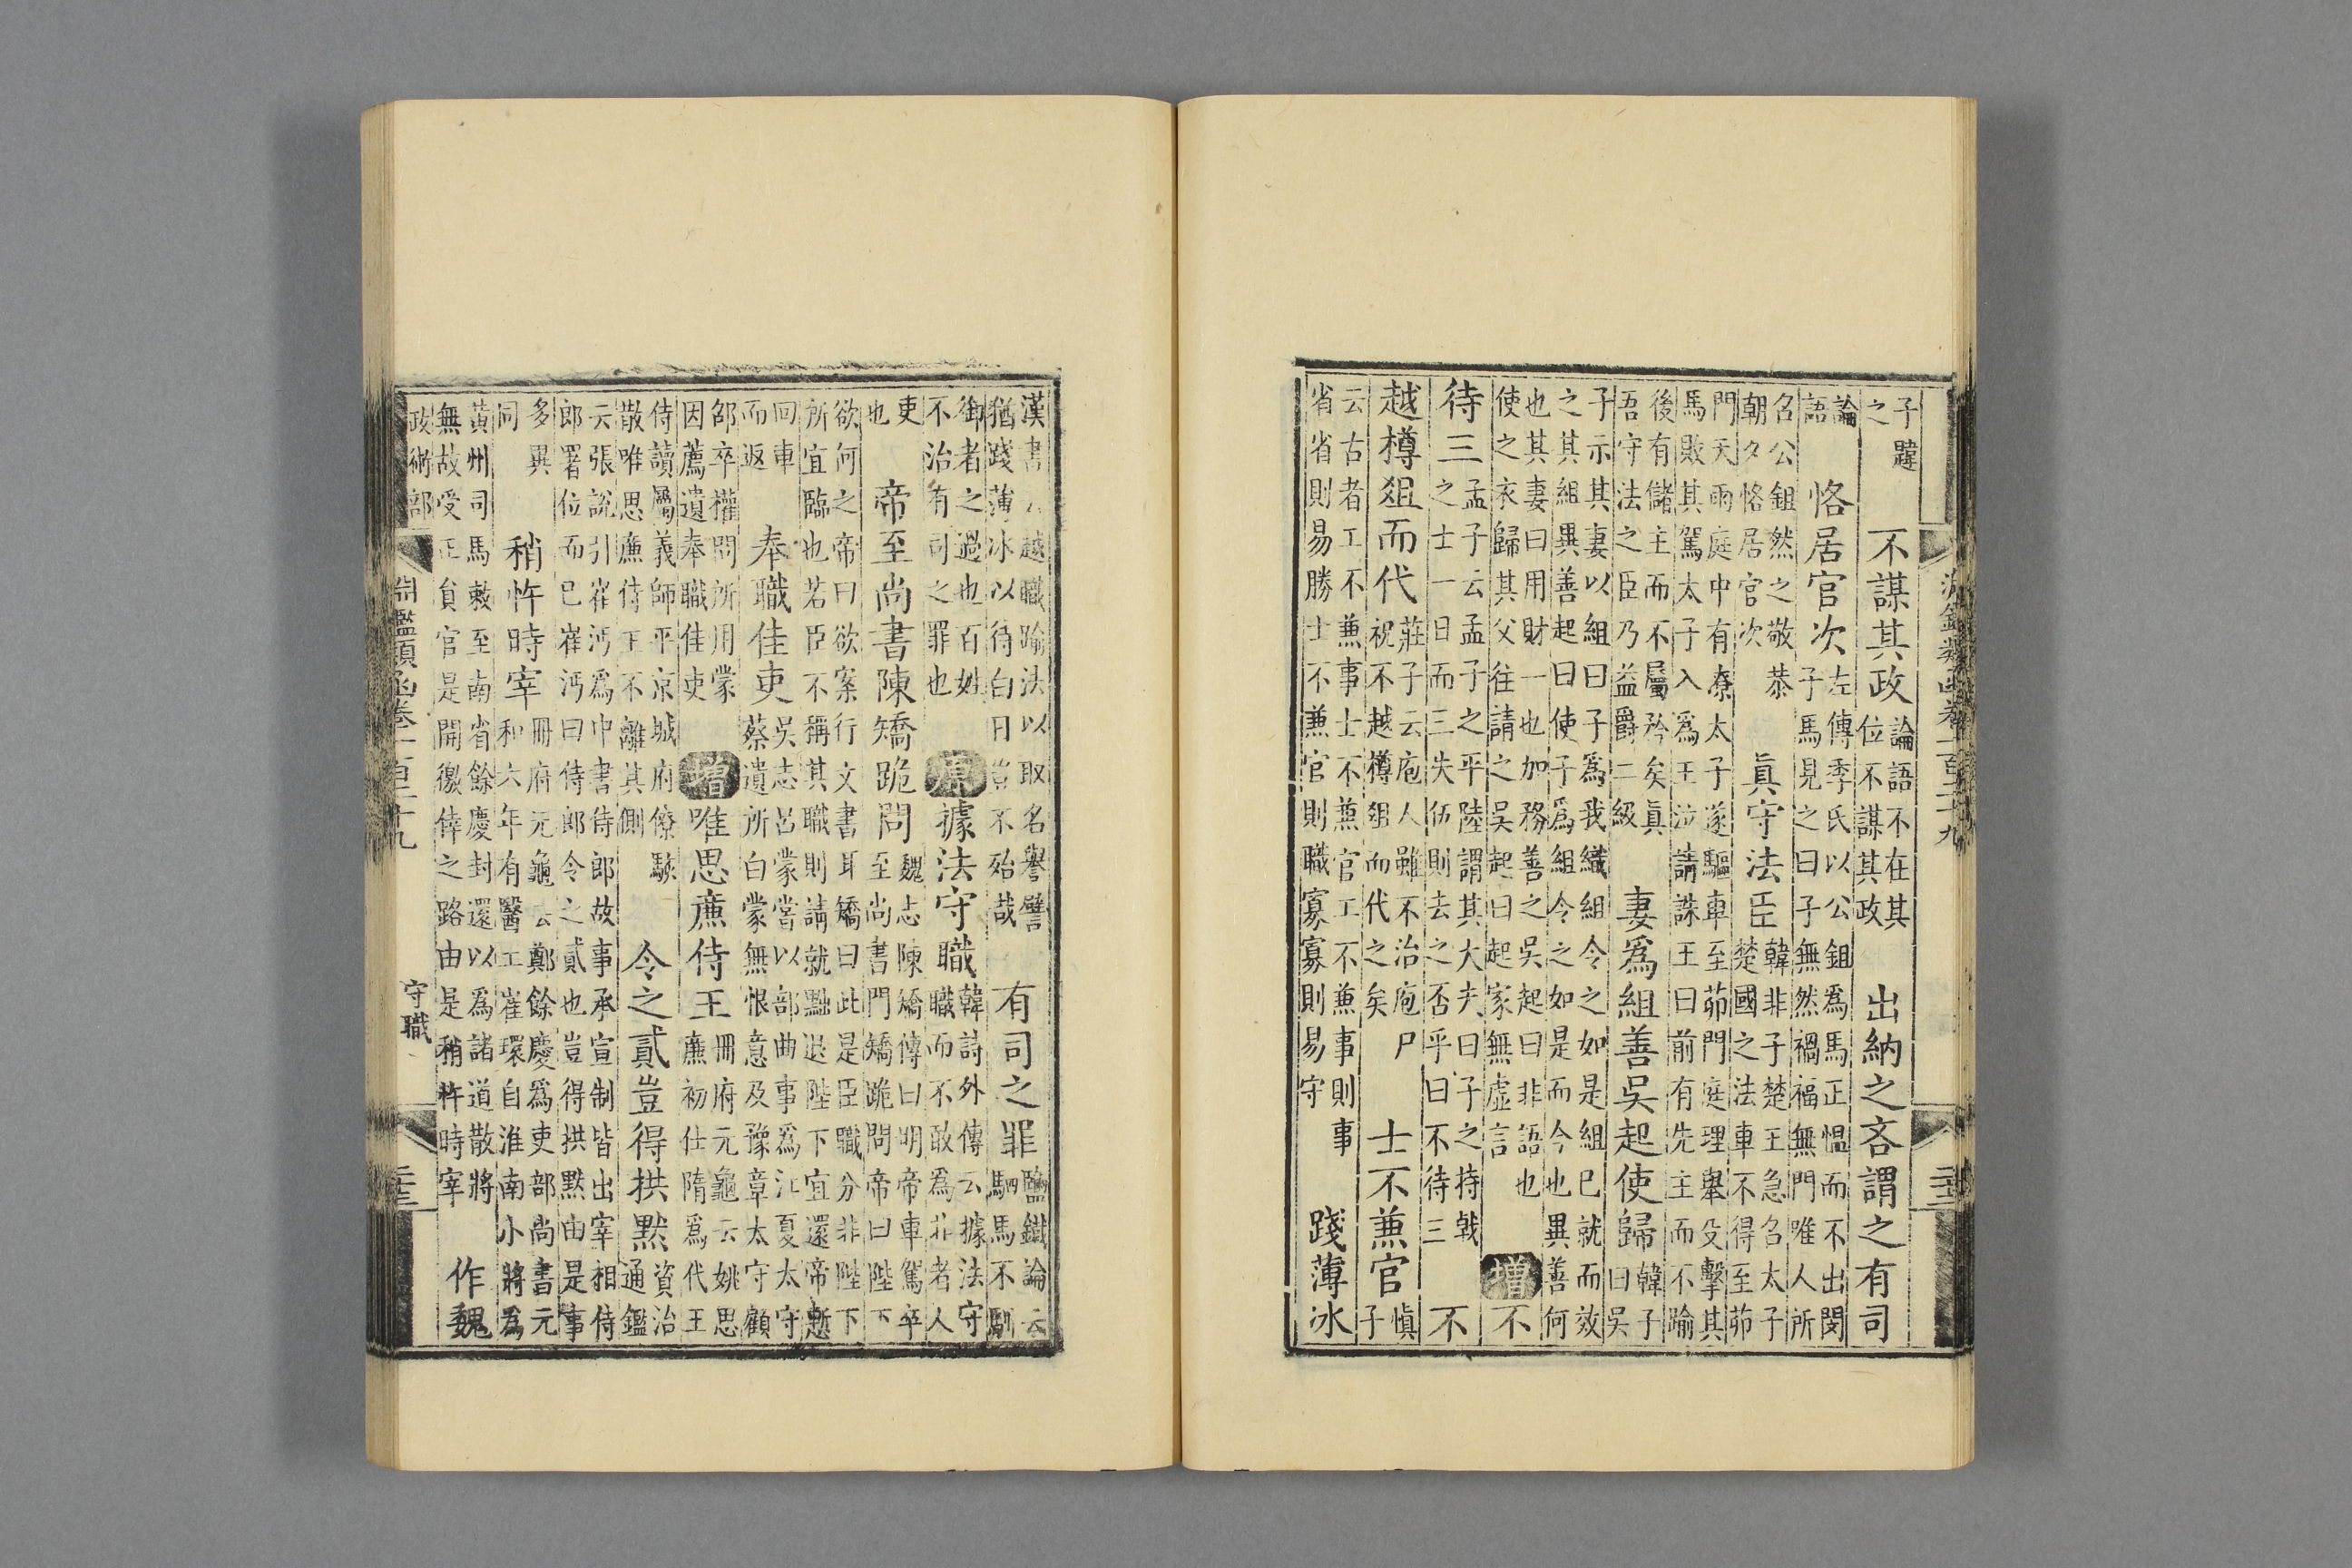 子韙
之
不謀其政
論語不在其
位不謀其政
出納之吝謂之有司
論
語
恪居官次
左傳季氏以公鉏為馬正愠而不出閔
子馬見之曰子無然禍福無門唯人所
召公鉏然之敬恭
朝夕恪居官次
眞守法臣
韓非子楚王急召太子
楚國之法車不得至茆
門天雨庭中有潦太子遂驅車至茆門庭理舉殳擊其
馬敗其駕太子入為王泣請誅王曰前有先主而不踰
後有儲主而不屬矜矣眞
吾守法之臣乃益爵二級
妻爲組善吳起使歸
韓子
曰吳
子示其妻以組曰子爲我織組令之如是組已就而效
之其組異善起曰使子爲組令之如是而今也異善何
也其妻曰用財一也加務善之吳起曰非語也
使之衣歸其父往請之吳起曰起家無虛言
增
不
待三
孟子云孟子之平陸謂其大夫曰子之持戟
之士一日而三失伍則去之否乎曰不待三
不
越樽俎而代
莊子云庖人雖不治庖尸
祝不越樽俎而代之矣
士不兼官
愼
子
云古者工不兼事士不兼官工不兼事則事
省省則易勝士不兼官則職寡寡則易守
踐薄冰
淵鑑類函卷一百二十九
漢書云越職踰法以取名譽譬
猶踐薄冰以待白日豈不殆哉
有司之罪
鹽鐵論云
駟馬不馴
御者之過也百姓
不治有司之罪也
原
據法守職
韓詩外傳云據法守
職而不敢為非者人
吏
也
帝至尚書陳矯跪問
魏志陳矯傳曰明帝車駕卒
至尚書門矯跪問帝曰陛下
欲何之帝曰欲案行文書耳矯曰此是臣職分非陛下
所宜臨也若臣不稱其職則請就黜退陛下宜還帝慙
回車
而返
奉職佳吏
吳志呂蒙嘗以部曲事為江夏太守
蔡遺所白蒙無恨意及豫章太守顧
邵卒權問所用蒙
因薦遺奉職佳吏
增
唯思廉侍王
冊府元龜云姚思
廉初仕隋爲代王
侍讀屬義師平京城府僚駭
散唯思廉侍王不離其側
令之貳豈得拱默
資治
通鑑
云張說引崔沔爲中書侍郎故事承宣制皆出宰相侍
郎署位而已崔沔曰侍郎令之貳也豈得拱默由是事
多異
同
稍忤時宰
冊府元龜云鄭餘慶爲吏部尚書元
和六年有醫工崔環自淮南小將爲
黃州司馬敕至南省餘慶封還以爲諸道散將
無故受正員官是開徼倖之路由是稍忤時宰
作魏
政術部
淵鑑類函卷一百二十九
守職